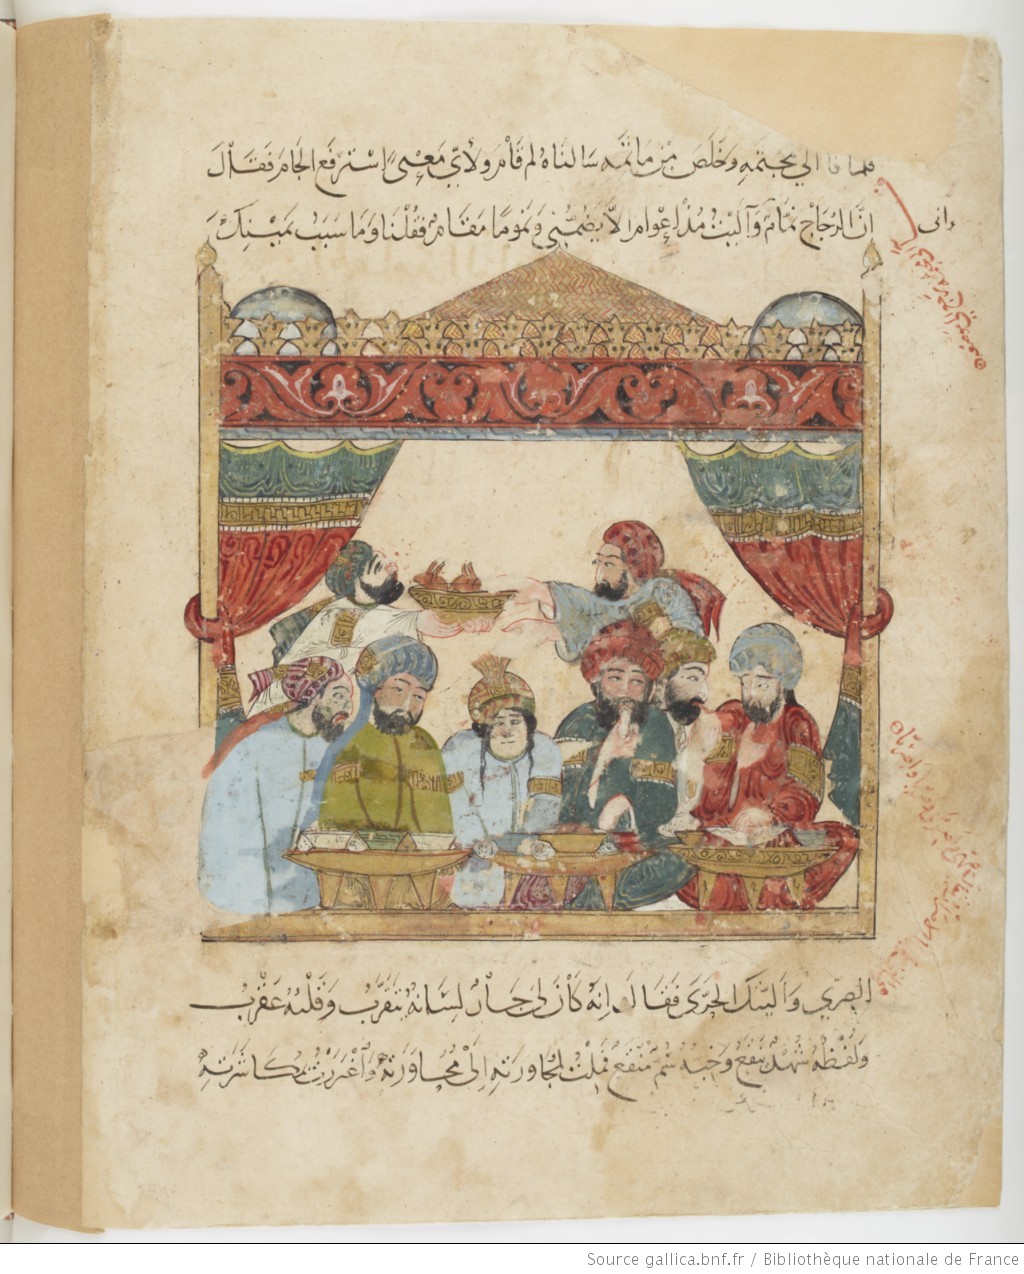 فلما فا الى بجتمه وخلص من ماتمه سالناه لم قام ولأي معنى استرفع الجام فقال
ان الزجاج نمام وآليت مذ اعوام الا يضمني ونموما مقام فقلنا وما سبب يمينك
وانى
الصرى واليتك الحرى فقال انه كان لى جار لسانه يتقرب وقلبه عقرب
ولفظه شهد ينفع وخبه سم منقع فملت لمجاورته الى محاورته واغتررت بمكاشرته
Source gallica.bnf.fr / Bibliothèque nationale de France